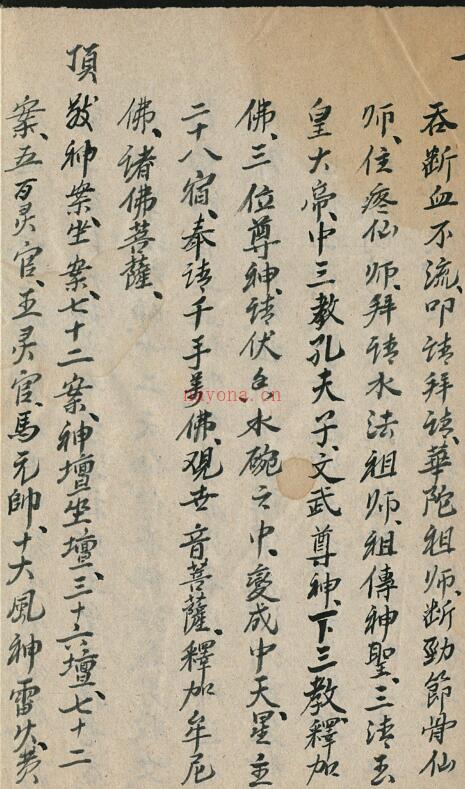 吞断血不流、叩请拜请、華陀祖师、断劲節骨仙
师、住疼仙师、拜请水法祖师、祖傳神聖、三清玉
皇大帝、中三教孔夫子、文武尊神、下三教釋加
佛、三位尊神、请伏水碗之中、变成中天星主
二十八宿、奉请千手佛、观世音菩薩、釋加牟尼
佛、诸佛菩薩、
頂敬神案坐案、七十二案、神壇坐壇、三十六壇、七十二
案、五百灵官、王灵官、馬元帥、十大風神雷火黄
nayona.cn